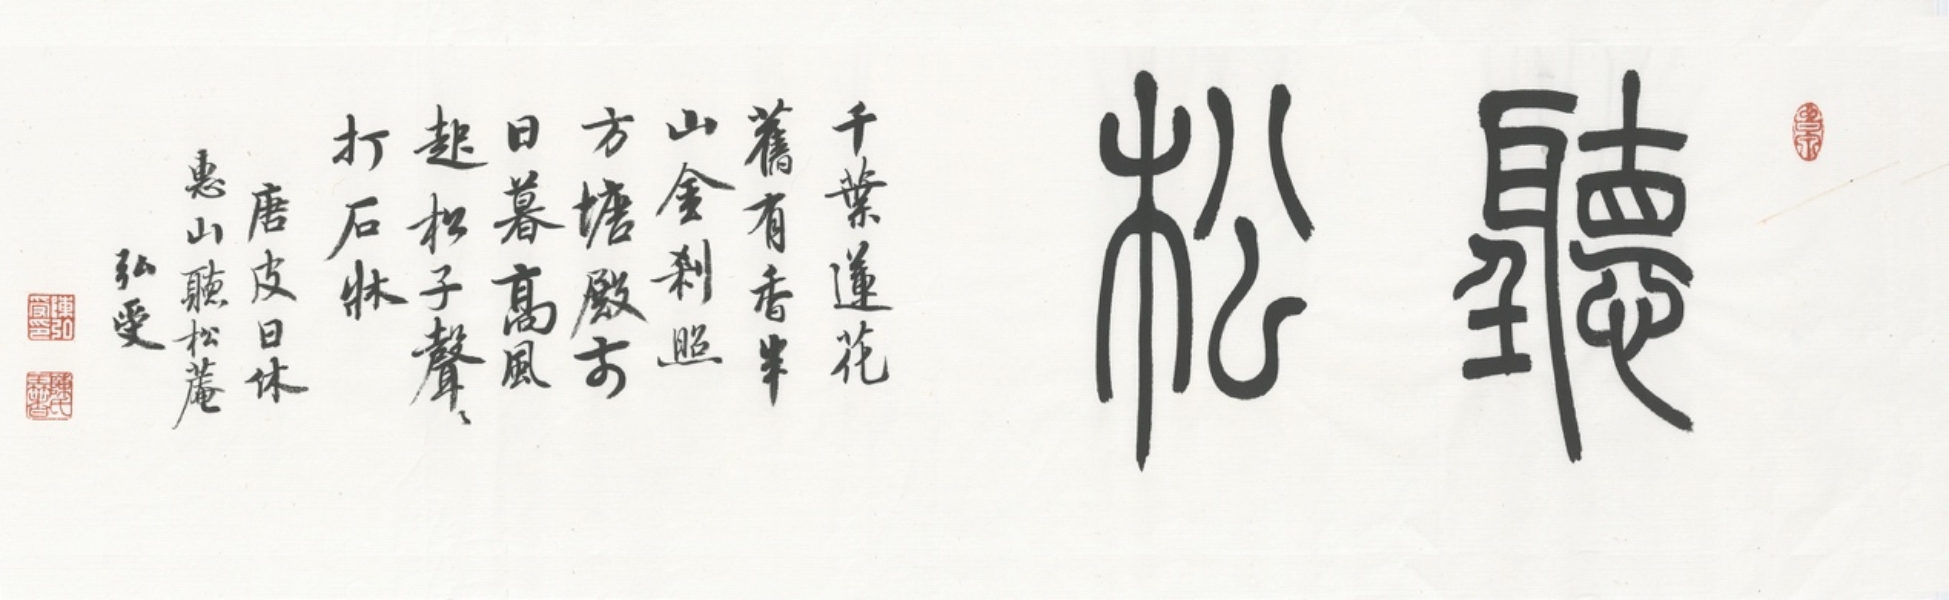 聽松
千葉蓮花
舊有香半
山金剎照
方塘殿前
日暮高風
起松子聲〻
打石牀
唐皮日休
惠山聽松菴
弘受
陳弘受印